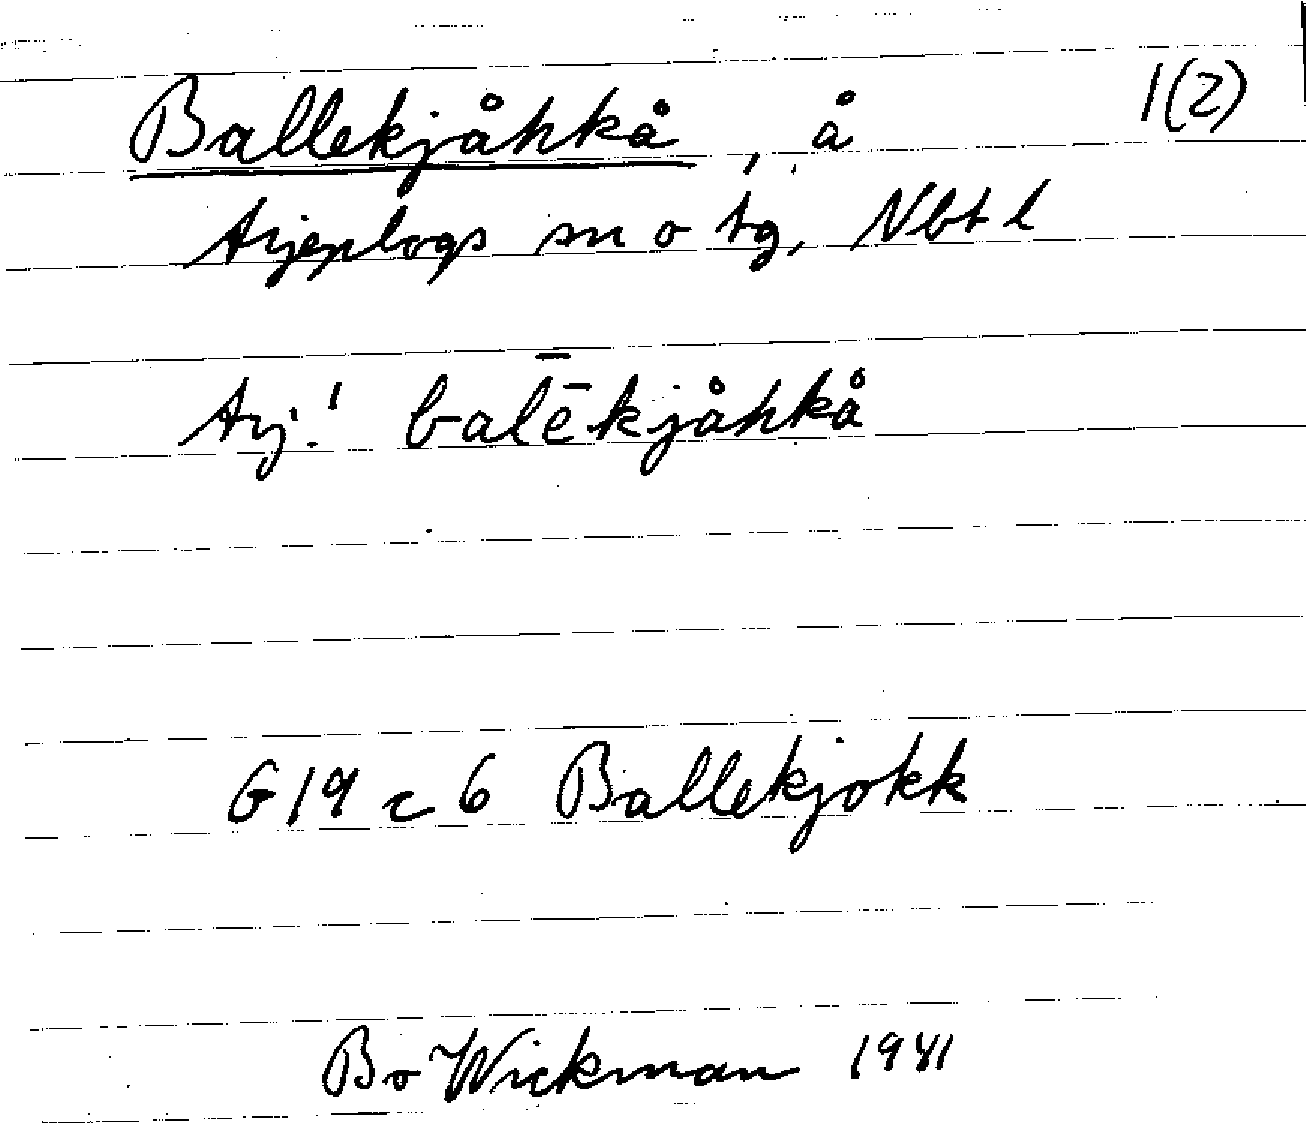 Ballekjåhkå, å 1(2)
Arjeplogs sn o tg, Nbt l
Arj.! balēkjåhkå
G19 c 6 Ballekjokk
Bo Wickman 1941